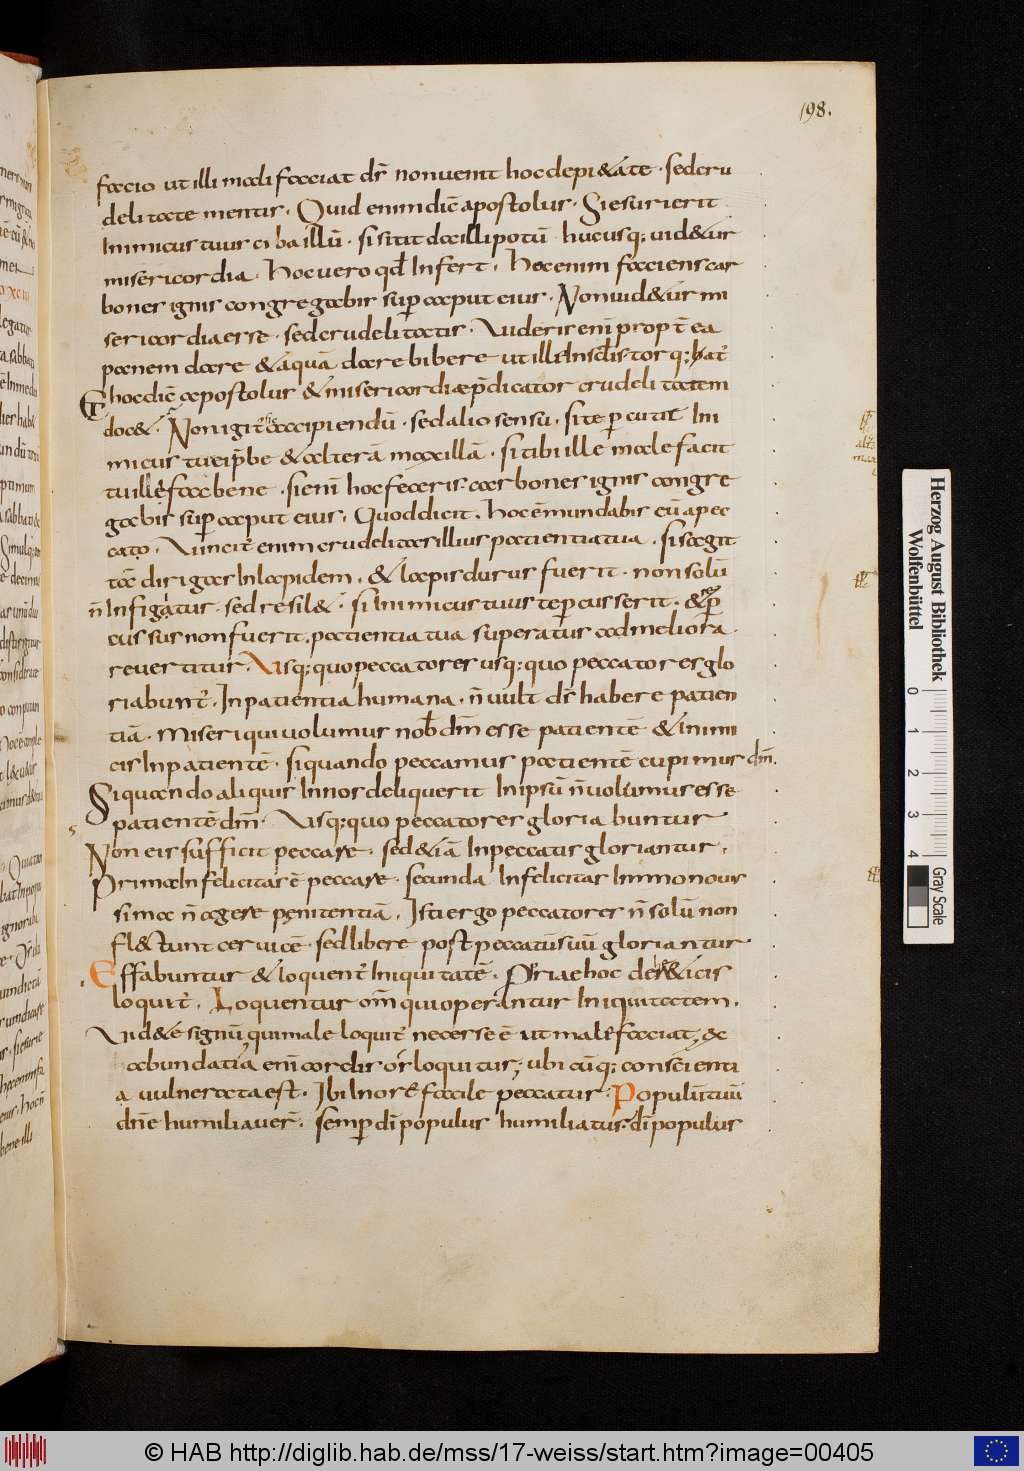 198.
facio ut illi modi faciat dr̄ non venit hoc de pi&ate · sed cru
delitate mentis · Quid enim dic̄ apostolus · Si esurierit
Inimicus tuus ciba illū · si sitit da illi potū hucusq; uid&ur
misericordia · hoc uero qd̄ Infert · hoc enim faciens car
bones ignis congregabis sup caput eius · Non uid&ur mi
sericordia esse · sed crudelitatis · Videris eni propt̄ ea
panem dare & aquā dare bibere ut ille
Et hoc dic̄ apostolus & misericordiae p̄dicator crudelitatem
doc& · Non igit̄ accipiendū · sed alio sensu · si te p cutit Ini
micus tuus p̄be & alterā maxillā · si tibi ille male facit
tu illi fac bene · si eni hoc feceris carbones ignis congre
gabis sup caput eius · Quod dicit · hoc ē mundabis eū a pec
cato · Vincit̄ enim crudelitas illius patientia tua · si sagit
tā dirigas In lapidem · & lapis durus fuerit · non solū
n̄ Infigatur · sed resil& · si Inimicus tuus te pcusserit · & rep
cussus non fuerit · patientia tua superatur ad meliora
reuertitur · Vsq; quo peccatores usq; quo peccatores glo
riabunt̄ · In patientia humana · n̄ uult dr̄ habere patien
tiā · Miseri qui uolumus nob̄ dm̄ esse patientē & inimi
cis Inpatientē · si quando peccamus patientē cupimus dm̄.
Si quando aliquis In nos deliquerit In ipsū n̄ uolumus esse
patientē dm̄ · Vsq; quo peccatores gloriabuntur
Non eis sufficit peccare · sed & iā In peccatis gloriantur ·
Prima Infelicitas ē peccare · secunda Infelicitas Immo nouis
sima n̄ agere penitentiā · Isti ergo peccatores n̄ solū non
flectunt ceruicē · sed libere post peccatū suū gloriantur
Effabuntur & loquent̄ Iniquitatē ·
loquit̄ · Loquentur om̄ qui operantur Iniquitatem ·
Vid& ē signū qui male loquit̄ necesse ē ut male faciat · &
abundatia eni cordis os loquitur · ubi cūq; conscienti
a uulnerata est · Ibi In ore facile peccatur · Populū tuū
dn̄e humiliauer̄ · semp di populus humiliatur · di populus
Herzog August Bibliothek
Wolfenbüttel
0 1 2 3 4
Gray Scale
© HAB http://diglib.hab.de/mss/17-weiss/start.htm?image=00405